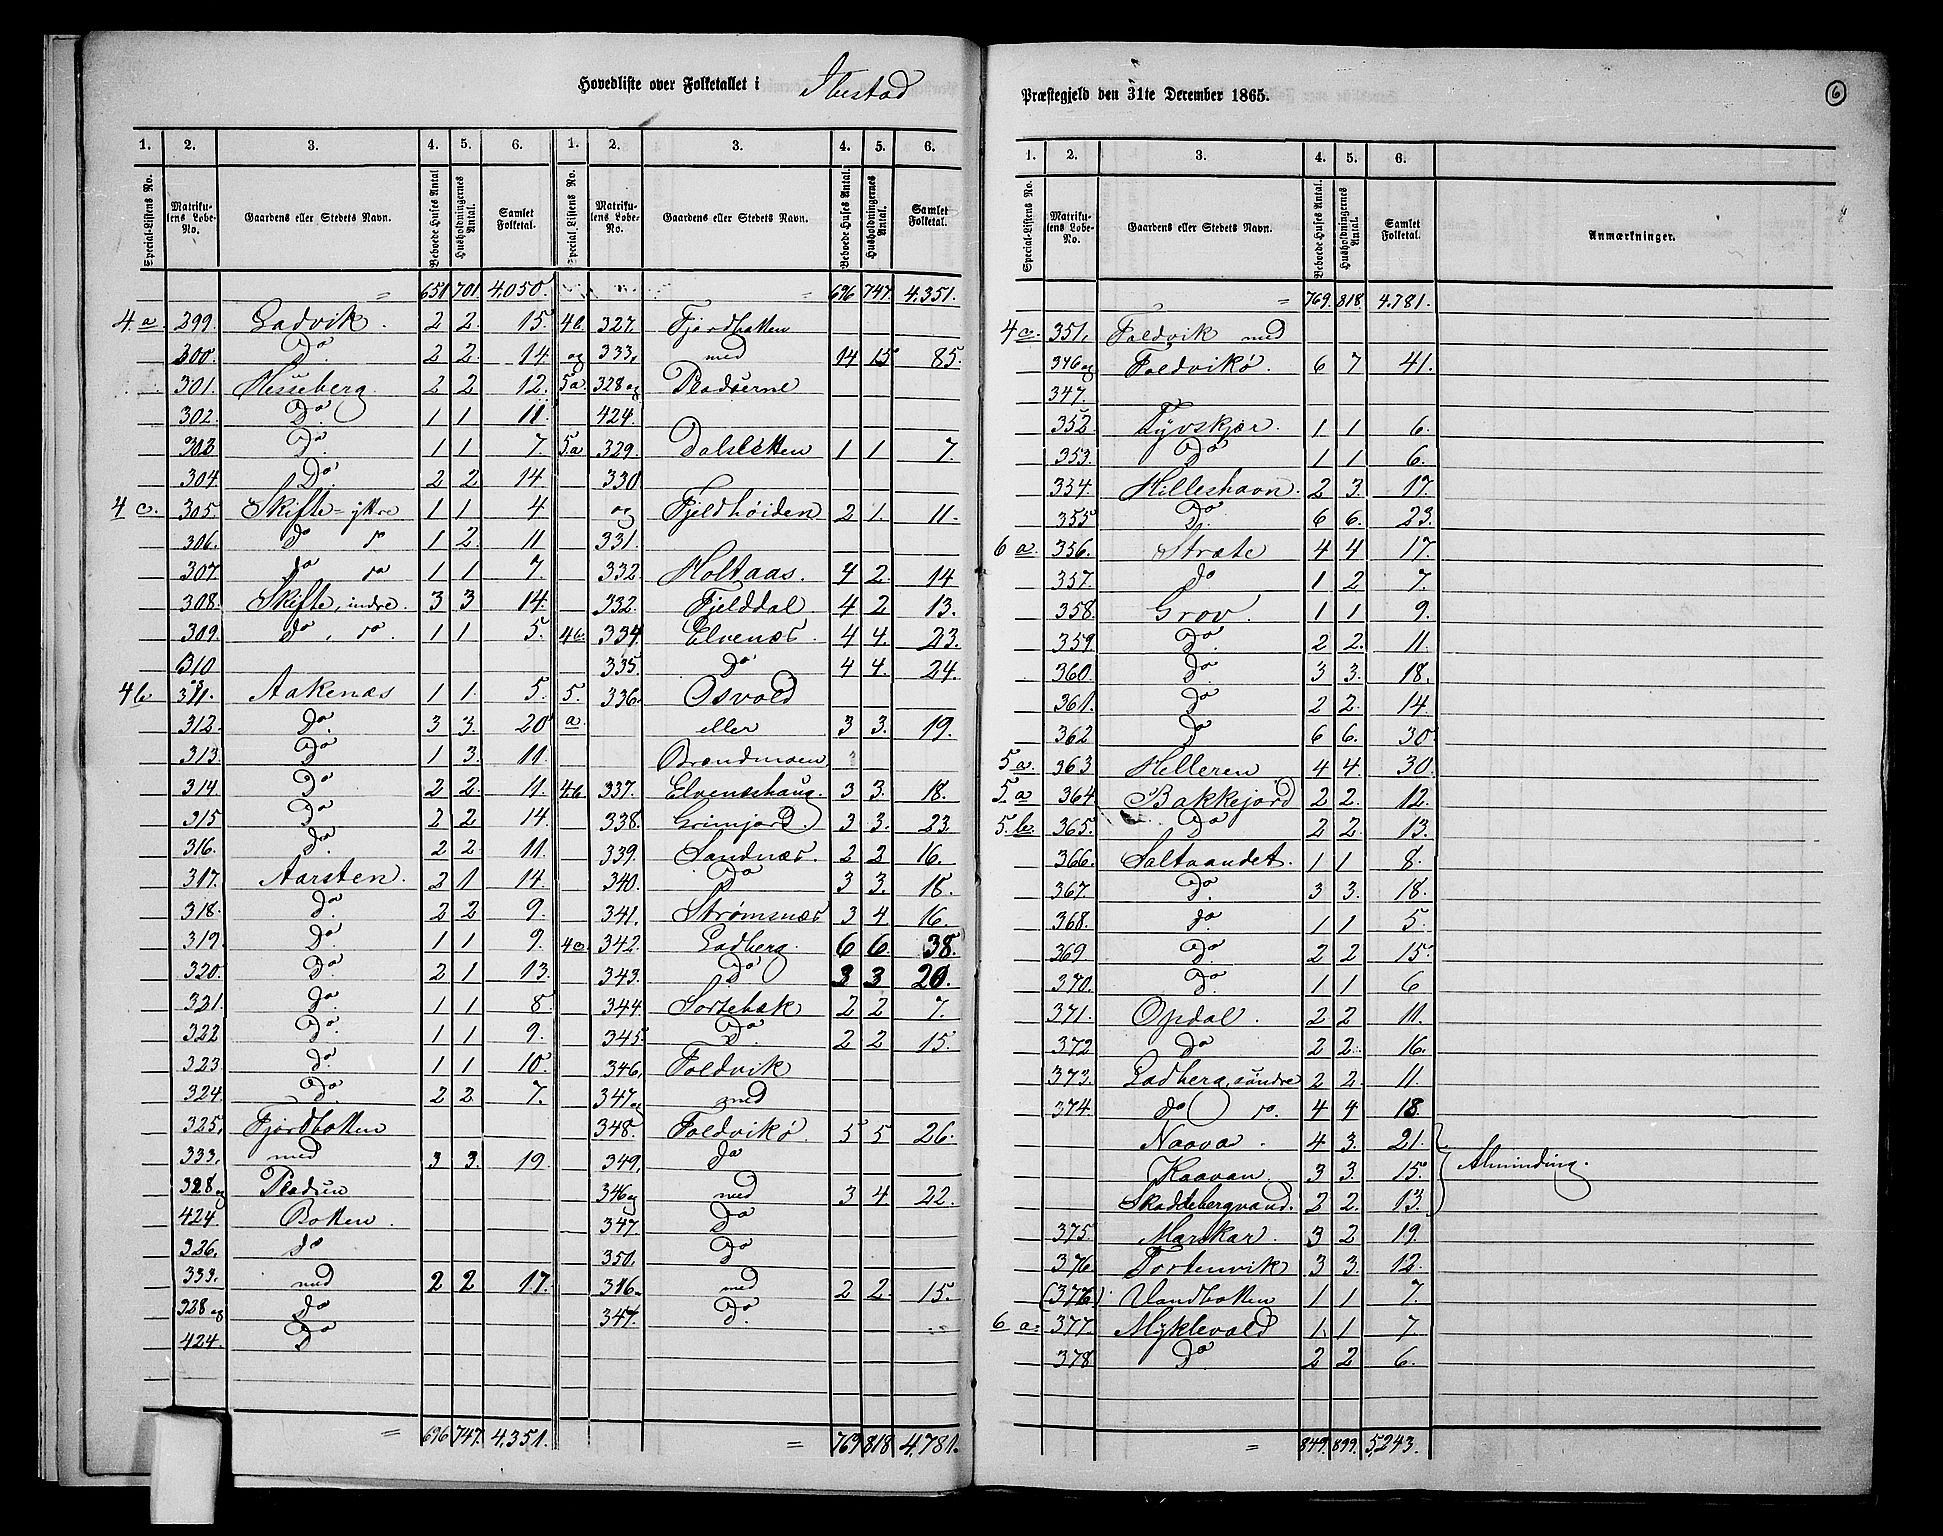 Hovedliste over Folketallet i Ibestad
Præstegjeld den 31te December 1865.
6
1. 2. 3. 4. 5. 6. 1. 2. 3. 4. 5. 6.
Special-Listens No. Matrikulens Løbe-No. Gaardens eller Stedets Navn. Beboede Huses Antal Husholdningernes Antal. Samlet Folketal. Special Listens No. Matrikulens Løbe-No. Gaardens eller Stedets Navn. Beboede Huses Antal. Husholdningernes Antal. Samlet Folketal.
= 651 701 4,050.
4 a. 299. Ladvik. 2 2. 15.
300. Do. 2 2. 14.
301. Hesseberg. 2 2 12.
302. Do. 1 1 11.
303 Do. 1 1 7.
304. Do. 2 2 14.
4 c. 305. Skifte=ytre 1 1 4
306. do do 1 2. 11
307. do do 1 1 7.
308. Skifte, indre. 3 3 14.
309. do, do. 1 1 5.
310
4b 311. Aakenæs 1 1. 5.
312. Do. 3 3. 20
313. Do 1 3. 11.
314. Do 2 2. 11.
315. Do 2 2 14
316. do. 2 2. 11.
317. Aarsten. 2 1 14.
318. do. 2 2 9.
319. Do. 1 1 9.
320. Do 2 1 13.
321. do. 1 1 8.
322 Do. 1 1 9.
323 do. 1 1 10.
324. Do. 2 2. 7.
325. Fjordbotten
333. med 3 3. 19.
328 og Pladsen
424. Botten.
326. do
333. med 2 2 17.
328 og Do
424. Do
= 696 747. 4,351.
= 696 747. 4,351.
4b. 327. Fjordbotten
og 333. med 14 15 85.
5a. 328 og Pladserne
424.
5a 329. Dalsletten 1 1 7.
330
og Fjeldhøiden 2 1. 11.
331.
332 Holtaas. 4 2. 14
332. Fjelddal. 4 2 13.
4b. 334. Elvenæs. 4 4. 23.
335. Do 4 4. 24.
5. 336. Osvold
a. eller 3 3. 19.
Brandmoen
4b 337. Elveneshaug. 3 3. 18.
338. Grimjord. 3 3. 23
339. Sandnæs. 2 2 16.
340. Do 3 3. 18.
341. Strømsnæs 3 4 16
4c. 342. Ladberg. 6 6. 38.
343. Do 3 3 20.
344. Sortebæk 2 2 7.
345. Do. 2 2 15.
346. Foldvik
347 og med
348. Foldvikø. 5 5 26.
349. do
346 og med 3 4 22.
347. Do
350. Do
346. med 2 2. 15.
347. Do.
= 769 818 4,781.
1. 2. 3. 4. 5. 6.
Special-Listens No. Matrikulens Løbe-No. Gaardens eller Stedets Navn. Beboede Huses Antal. Husholdningernes Antal. Samlet Folketal. Anmærkninger.
= 769. 818. 4,781.
4 c. 351. Foldvik med
346 og Foldvikø 6 7 41.
347.
352. Tyvskjær. 1 1 6.
353. Do 1 1 6.
354. Hilleshavn. 2 3. 17.
355 Do. 6 6. 23.
6 a. 356. Stræte 4 4 17.
357. do 1 2 7.
358. Grov. 1 1 9.
359. Do. 2 2. 11.
360. do. 3 3. 18.
361. Do 2 2. 14.
362 Do 6 6. 30
5 a. 363. Helleren 4 4. 30.
5. a 364 Bakkejord 2 2. 12.
5. b. 365. Do 2 2. 13.
366. Saltvandet. 1 1 8.
367. Do. 3 3. 18.
368. do. 1 1 5.
369 Do 2 2 15.
370. Do. 1 1 6
371. Opdal. 2 2 11.
372 do 2 2. 16.
373. Ladberg, søndre 2 2. 11.
374. do do. 4 4 18.
Naava. 4 3. 21.
Kaavan. 3 3. 15. Alminding.
Skoddebergvand. 2 2. 13.
375. Marskar. 3 2 19.
376. Tortenvik 3 3. 12.
(376). Vandbotten 1 1 7.
6 a. 377. Myklevold 1. 1 7
378. Do. 2 2 6.
= 849. 899. 5,243.